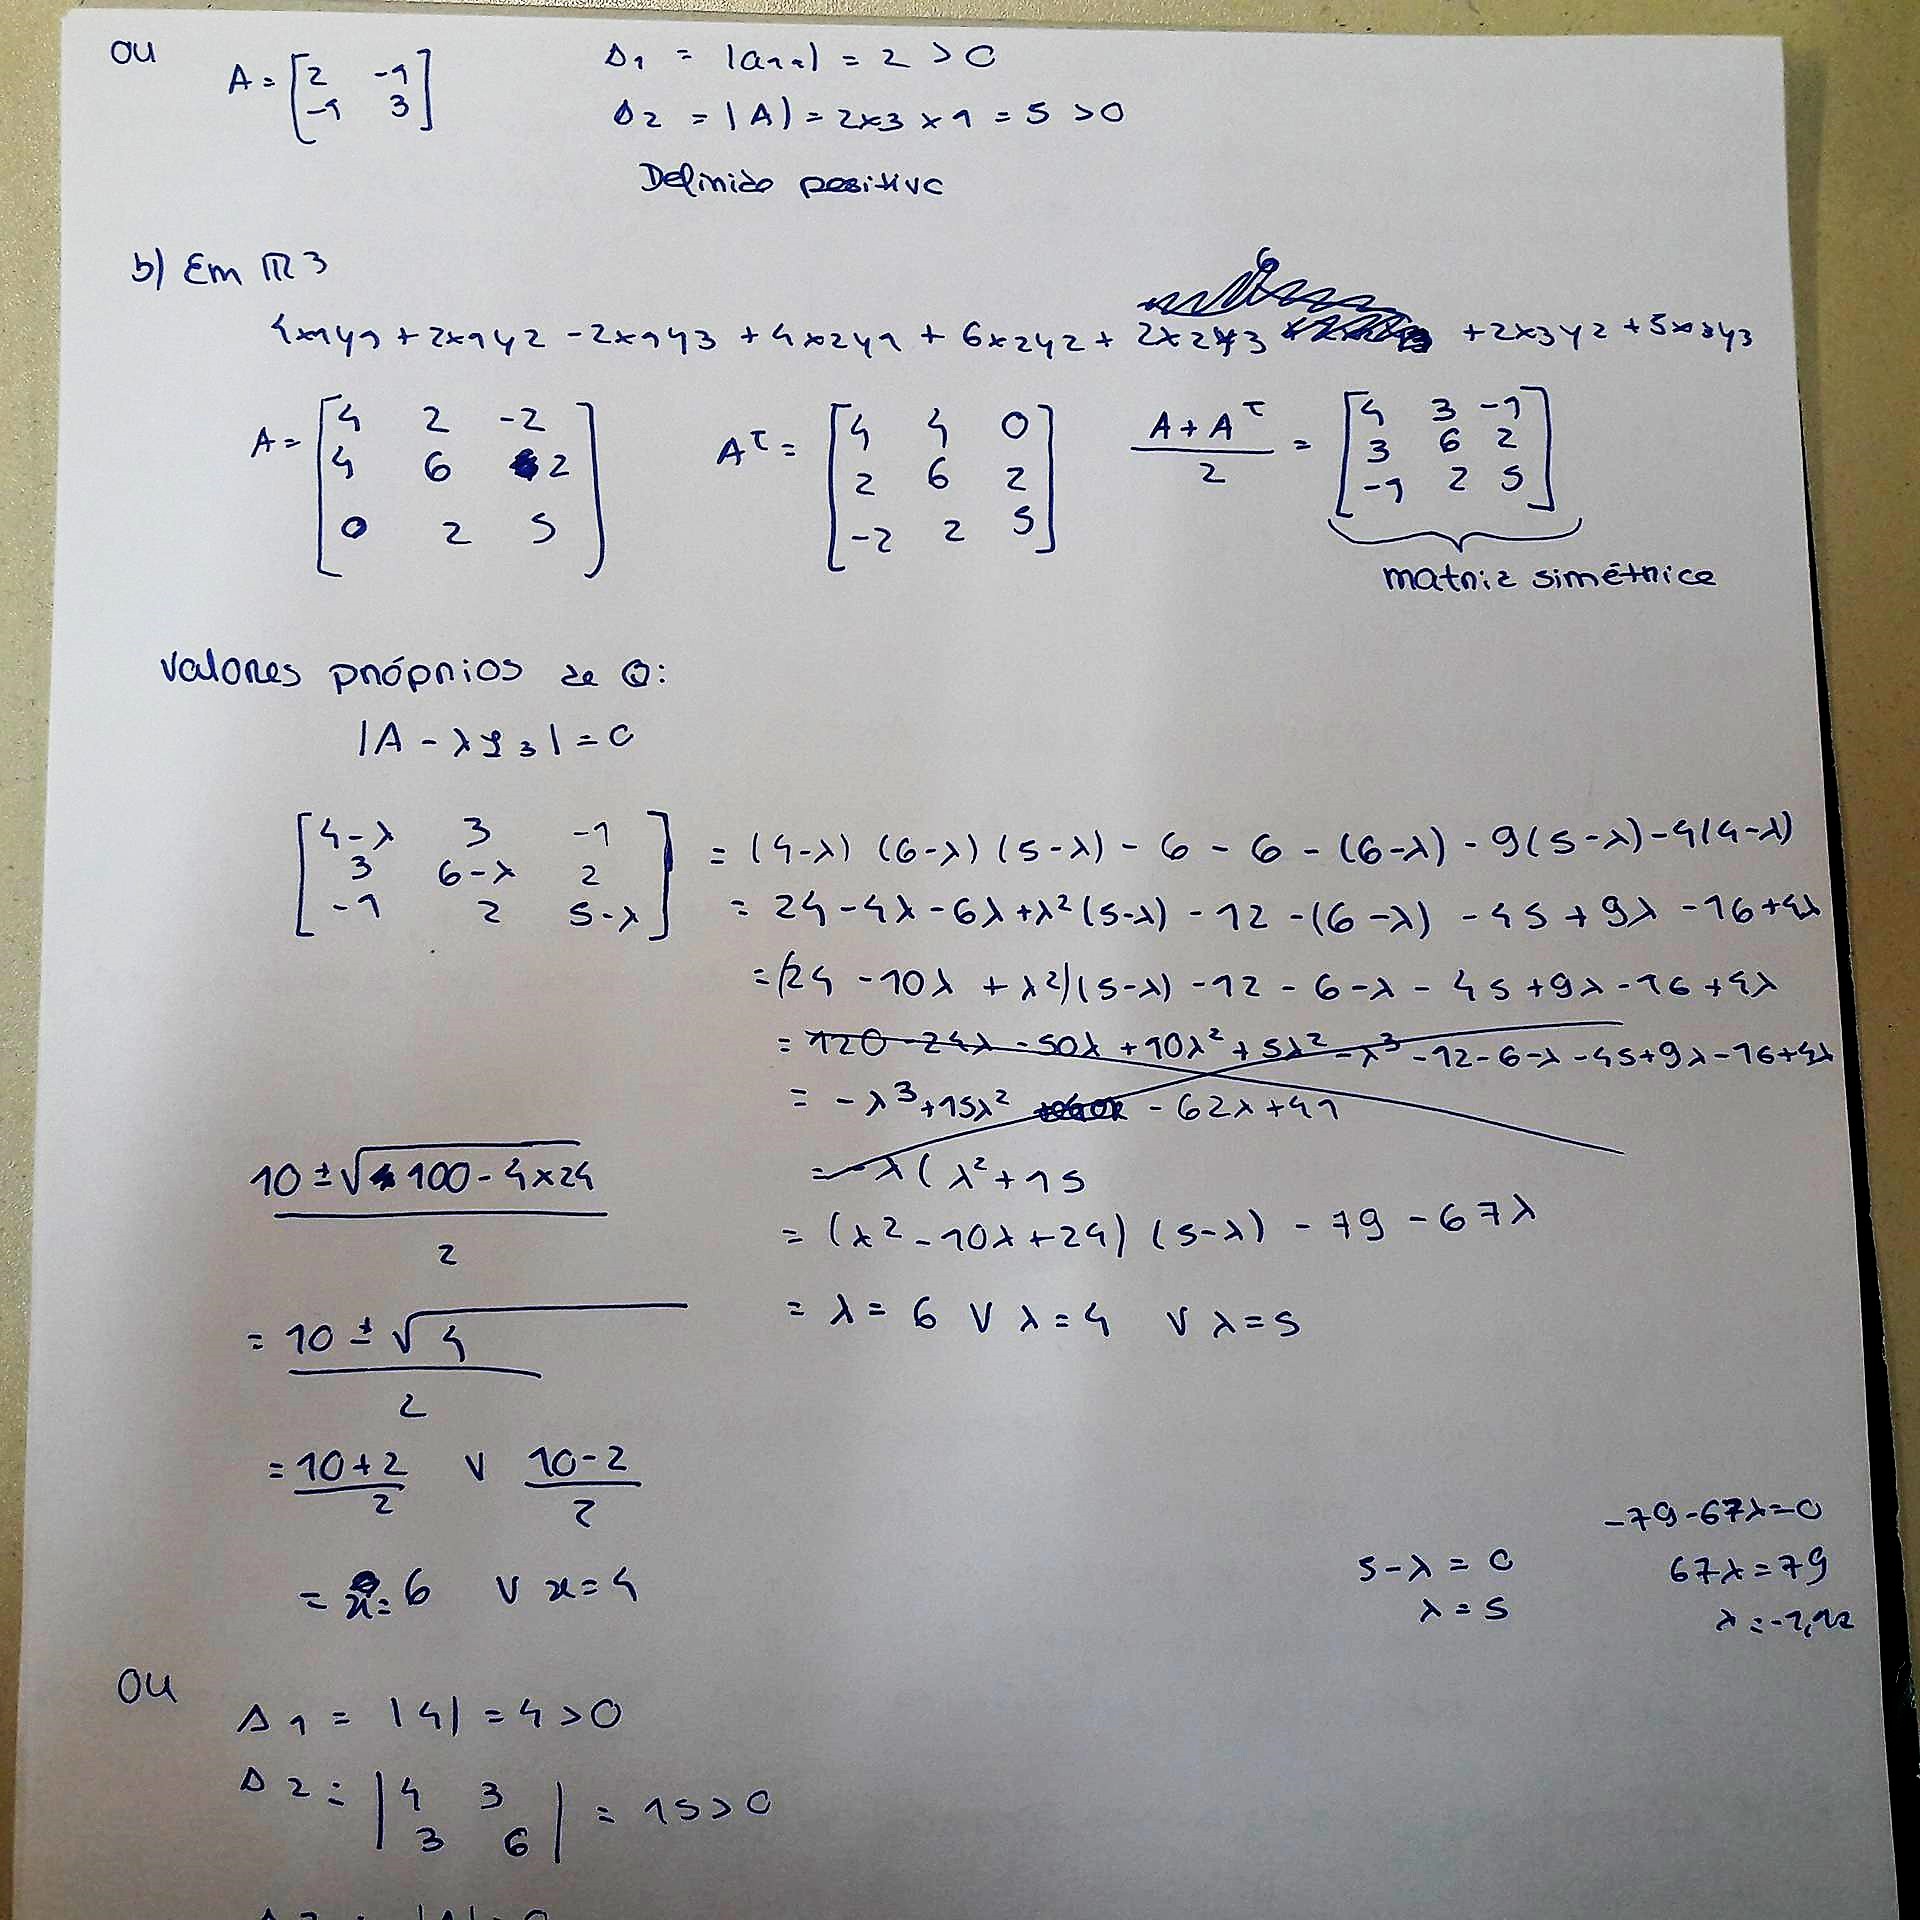 ou
A = [2 -1
-1 3]
Δ1 = |a11| = 2 > 0
Δ2 = |A| = 2×3×1 = 5 >0
Definida positiva
b) Em ℝ3
4x1y1 + 2x1y2 - 2x1y3 + 4x2y1 + 6x2y2 + 2x2y3 + 2x3y2 + 5x3y3
A = [4 2 -2
4 6 2
0 2 5]
Aᵀ = [4 4 0
2 6 2
-2 2 5]
(A + Aᵀ)/2 = [4 3 -1
3 6 2
-1 2 5]
matriz simétrica
Valores próprios de Q:
|A - λI3| = 0
[4-λ 3 -1
3 6-λ 2
-1 2 5-λ]
= (4-λ) (6-λ) (5-λ) - 6 - 6 - (6-λ) - 9(5-λ) - 4(4-λ)
= 24 - 4λ - 6λ + λ²(5-λ) - 12 - (6-λ) - 45 + 9λ - 16 + 4λ
= (24 - 10λ + λ²)(5-λ) - 12 - 6 - λ - 45 + 9λ - 16 + 4λ
= 120 - 24λ - 50λ + 10λ² + 5λ² - λ³ - 12 - 6 - λ - 45 + 9λ - 16 + 4λ
= -λ³ + 15λ² - 62λ + 41
= -λ(λ² + 15
= (λ² - 10λ + 24) (5-λ) - 79 - 67λ
= λ = 6 ∨ λ = 4 ∨ λ = 5
10 ± √100 - 4×24
2
= 10 ± √4
2
= 10+2 ∨ 10-2
2 2
= x = 6 ∨ x = 4
5-λ = 0
λ = 5
-79 - 67λ = 0
67λ = 79
ou
Δ1 = |4| = 4 > 0
Δ2 = |4 3
3 6| = 15 > 0